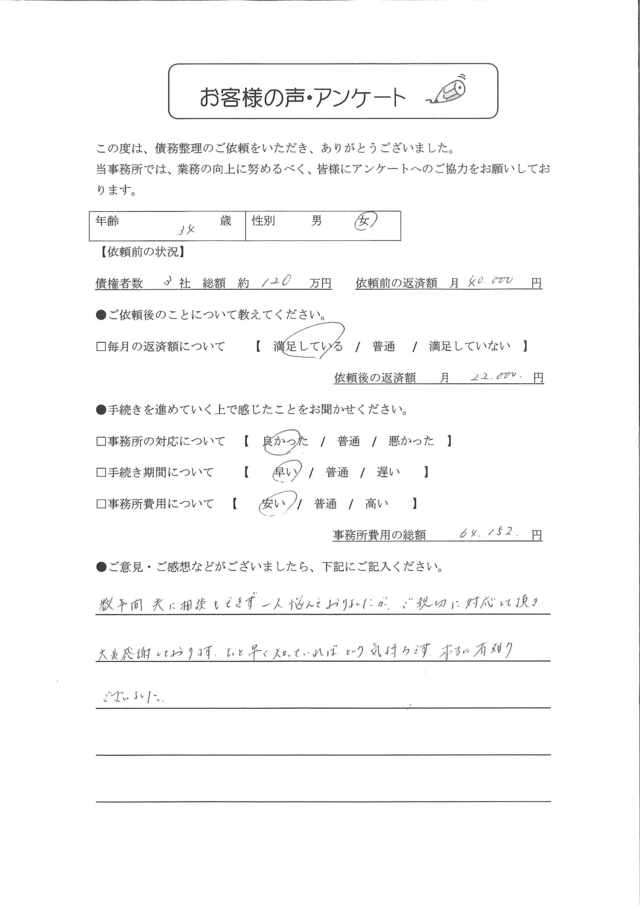 お客様の声・アンケート
この度は、債務整理のご依頼をいただき、ありがとうございました。
当事務所では、業務の向上に努めるべく、皆様にアンケートへのご協力をお願いしてお
ります。
年齢 34 歳 性別 男 女
【依頼前の状況】
債権者数 3 社 総額 約 120 万円 依頼前の返済額 月 40.000 円
●ご依頼後のことについて教えてください。
□毎月の返済額について 【 満足している / 普通 / 満足していない 】
依頼後の返済額 月 22.000. 円
●手続きを進めていく上で感じたことをお聞かせください。
□事務所の対応について 【 良かった / 普通 / 悪かった 】
□手続き期間について 【 早い / 普通 / 遅い 】
□事務所費用について 【 安い / 普通 / 高い 】
事務所費用の総額 64.152. 円
●ご意見・ご感想などがございましたら、下記にご記入ください。
数年間 夫に相談もできず 一人 悩んでおりましたが、ご親切に対応して頂き
大変感謝しております。もっと早く知っていればという気持ちです。本当に有難う
ございました。